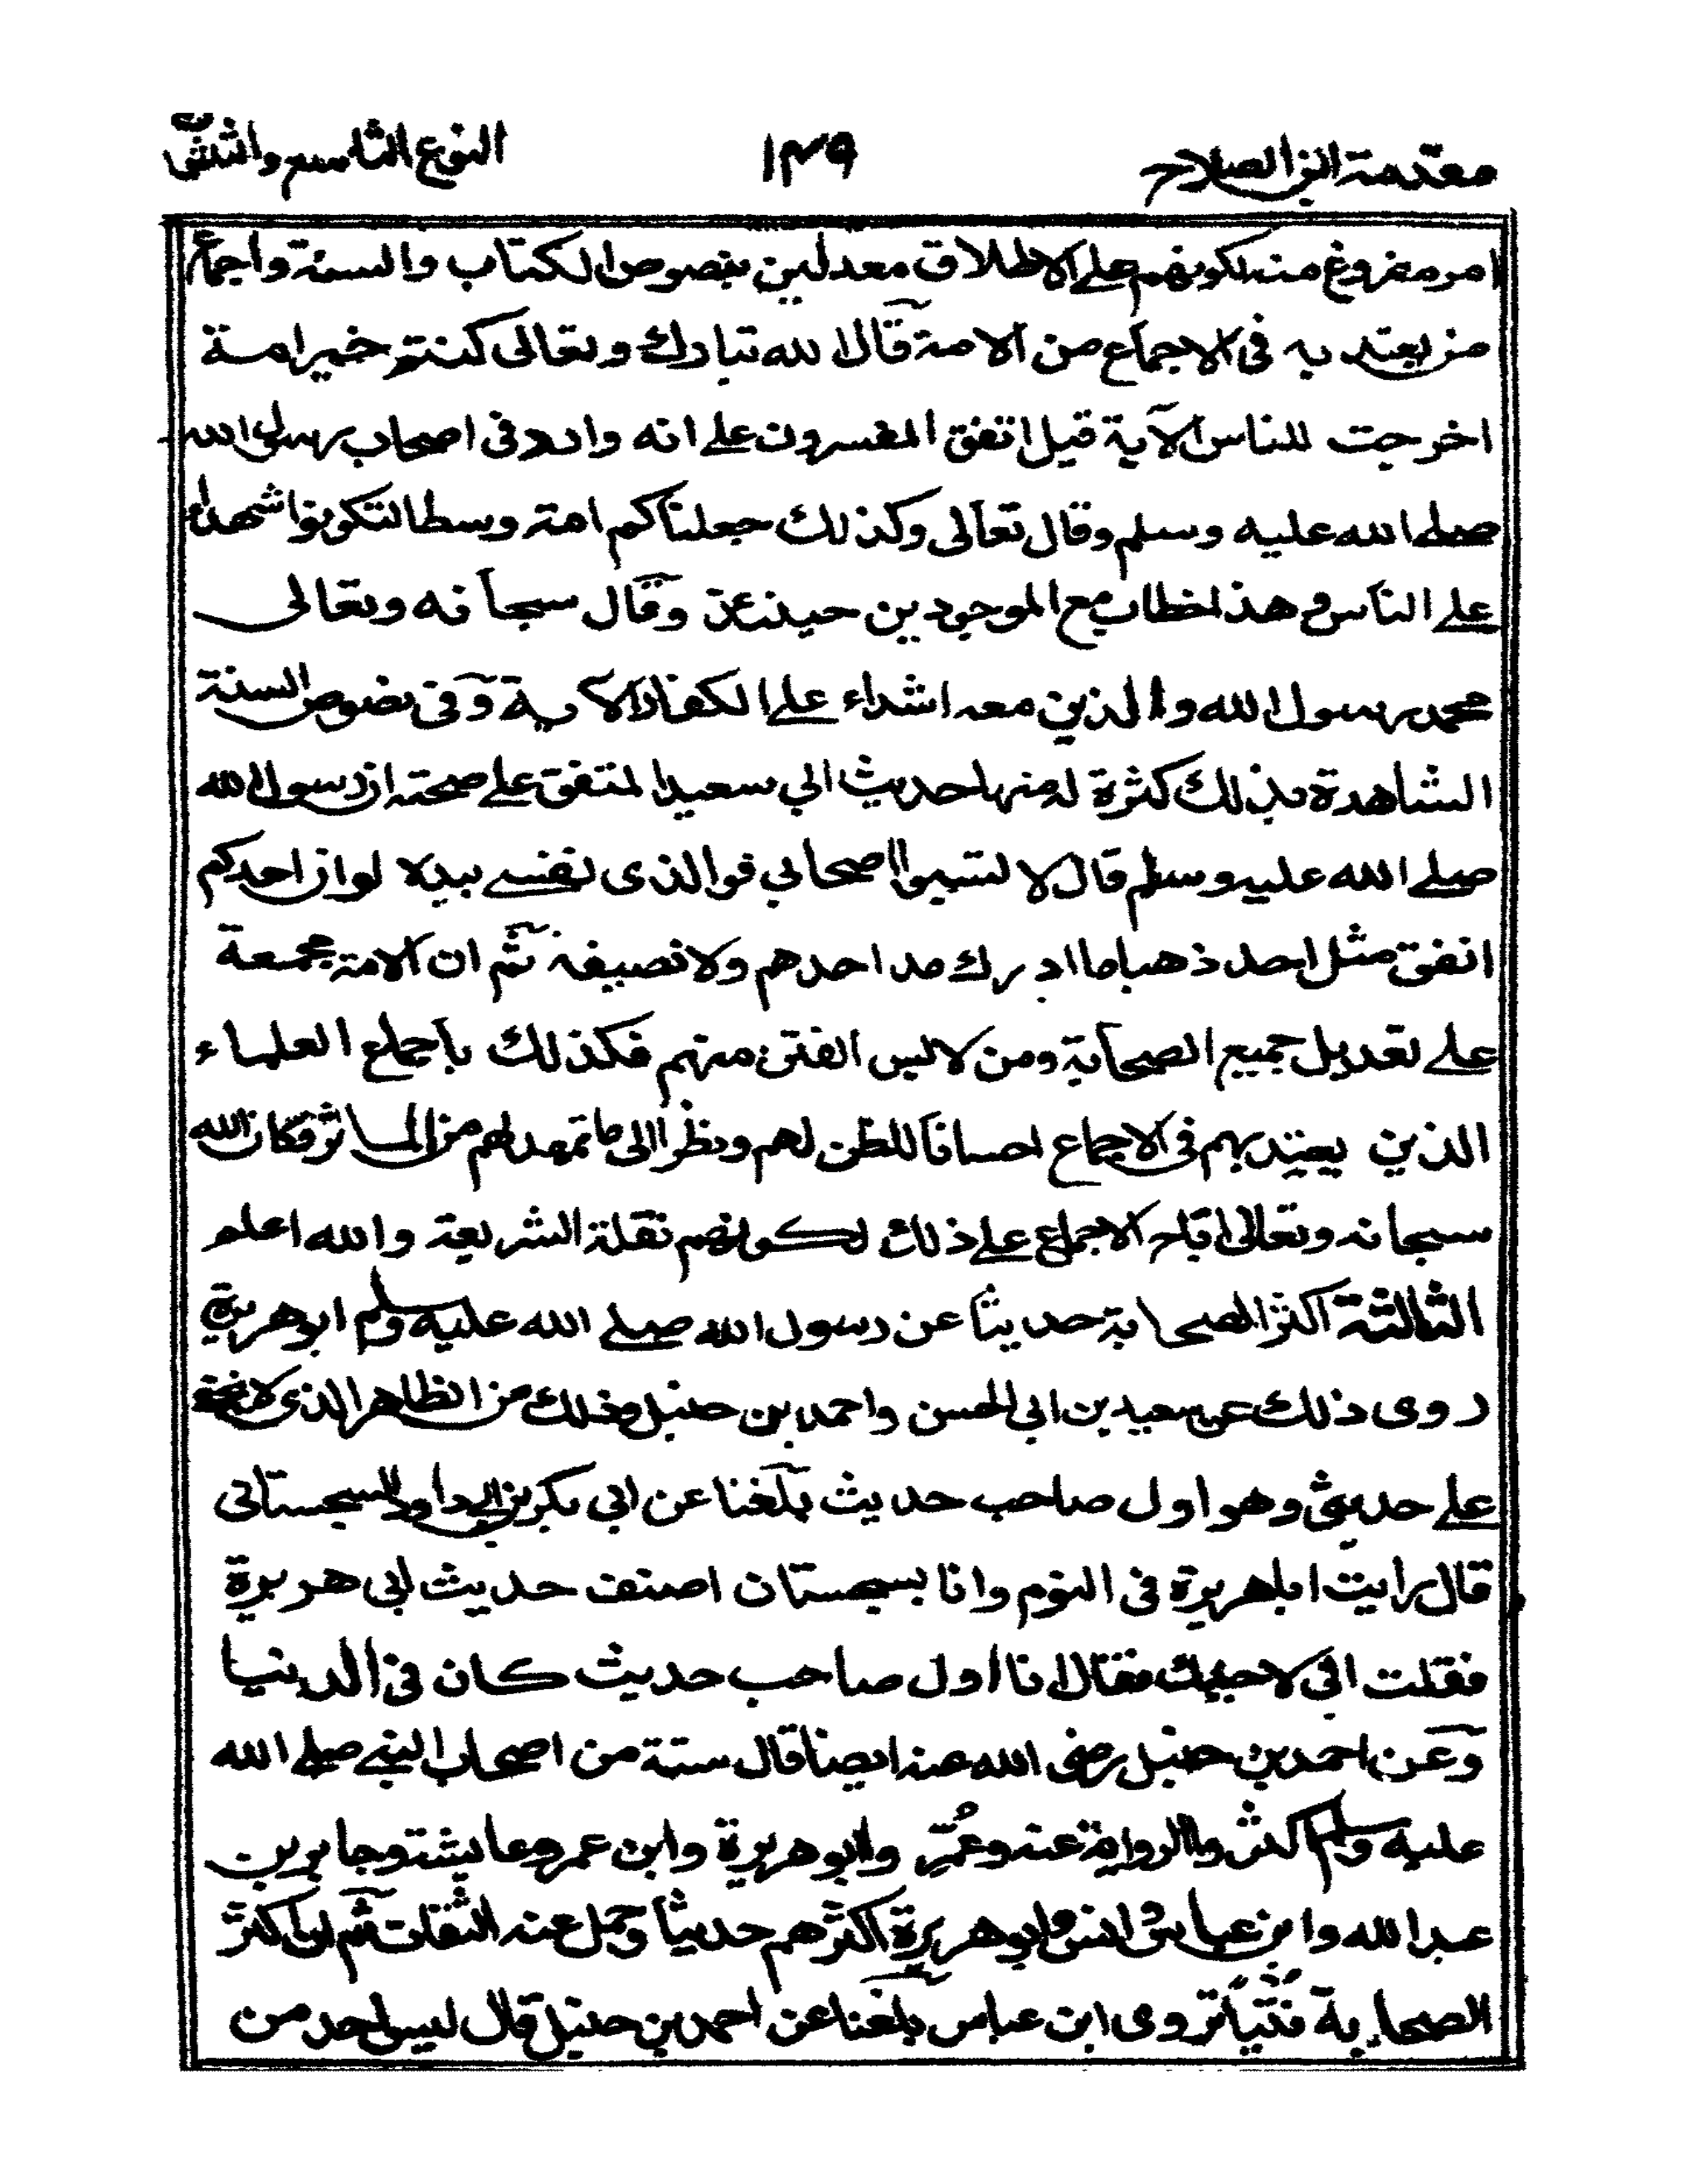 مقدمة ابن الصلاح ١٤٩ النوع التاسع والثلثون
امر مفروغ منه لكونهم على الاطلاق معدلين بنصوص الكتاب والسنة واجماع
من يعتد به فى الاجماع من الامة قال الله تبارك وتعالى كنتم خير امة
اخرجت للناس الآية قيل اتفق المفسرون على انه وارد فى اصحاب رسول الله
صلى الله عليه وسلم وقال تعالى وكذلك جعلناكم امة وسطا لتكونوا شهداء
على الناس و هذا خطاب مع الموجودين حينئذ وقال سبحانه وتعالى
محمد رسول الله والذين معه اشداء على الكفار الاية وفى نصوص السنة
الشاهدة بذلك كثرة منها حديث ابي سعيد المتفق على صحته ان رسول الله
صلى الله عليه وسلم قال لا تسبوا اصحابي فوالذى نفسى بيده لو ان احدكم
انفق مثل احد ذهبا ما ادرك مد احدهم ولا نصيفه ثم ان الامة مجمعة
على تعديل جميع الصحابة ومن لابس الفتن منهم فكذلك باجماع العلماء
الذين يعتد بهم فى الاجماع احسانا للظن لهم ونظرا الى ما تمهد لهم من المآثر فكان الله
سبحانه وتعالى اتاح الاجماع على ذلك لكونهم نقلة الشريعة والله اعلم
الثالثة اكثر الصحابة حديثا عن رسول الله صلى الله عليه وسلم ابو هريرة
روى ذلك عن سعيد بن ابي الحسن واحمد بن حنبل وذلك من الظاهر الذى لا يخفى
على حديثى وهو اول صاحب حديث بلغنا عن ابي بكر بن ابي داود السجستانى
قال رايت ابا هريرة فى النوم وانا بسجستان اصنف حديث ابى هريرة
فقلت انى لاحبك فقال انا اول صاحب حديث كان فى الدنيا
وعن احمد بن حنبل رضى الله عنه ايضا قال ستة من اصحاب النبى صلى الله
عليه وسلم اكثروا الرواية عنه وعمروا ابو هريرة وابن عمر وعايشة وجابر بن
عبد الله وابن عباس وانس وابو هريرة اكثرهم حديثا وحمل عنه الثقات ثم ان اكثر
الصحابة فتيا تروى ابن عباس بلغنا عن احمد بن حنبل قال ليس احد من